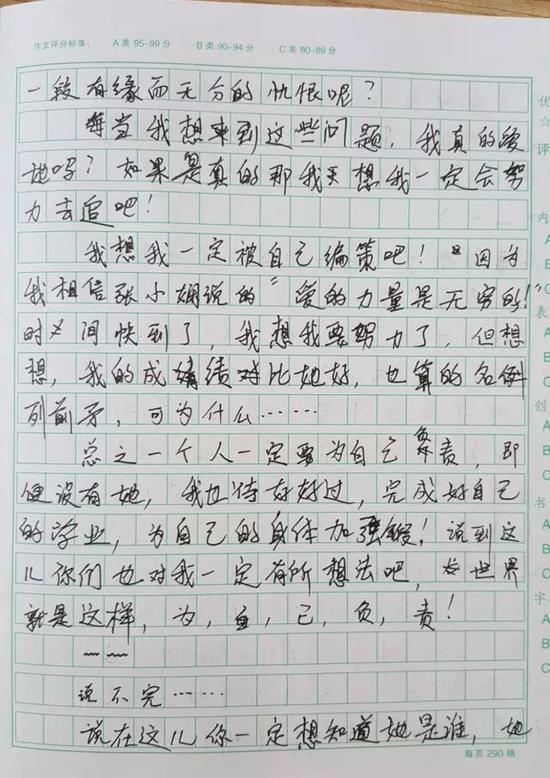 作文评分标准： A类 95-99分 B类 90-94分 C类 80-89分
一段有缘而无分的仇恨呢？
每当我想来到这些问题，我真的爱
她吗？如果是真的那我天想我一定会努
力去追吧！
我想我一定被自己编策吧！因为
我相信张小娴说的“爱的力量是无穷的！”
时间快到了，我想我要努力了，但想
想，我的成绩对比她好，也算的名例
列前矛，可为什么……
总之一个人一定要为自己负责，即
便没有她，我也待好好过，完成好自己
的学业，为自己的身体加强锻！说到这
儿你们也对我一定有所想法吧，世界
就是这样，为，自，己，负，责！
~~
说不完……
说在这儿你一定想知道她是谁，她
每页290格
优
☆
评
内
A
B
C
表
A
B
C
创
A
B
C
书
A
B
C
字
A
B
C